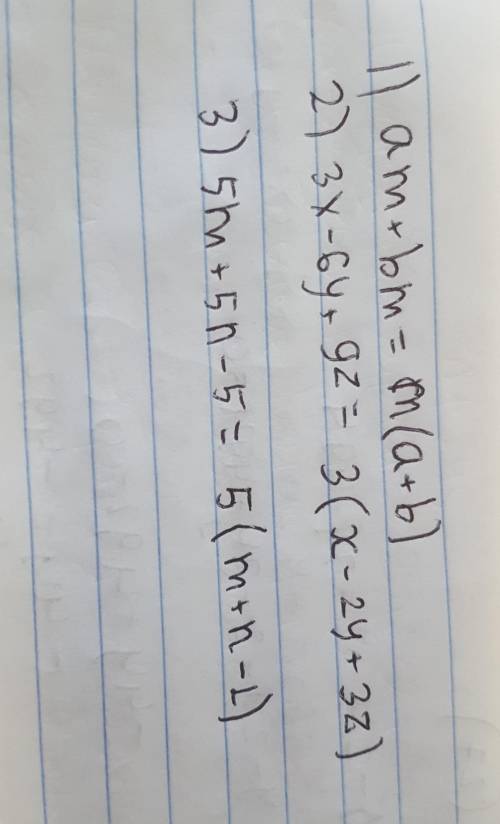 1) am + bm = m(a+b)
2) 3x - 6y + 9z = 3(x - 2y + 3z)
3) 5m + 5n - 5 = 5(m + n - 1)